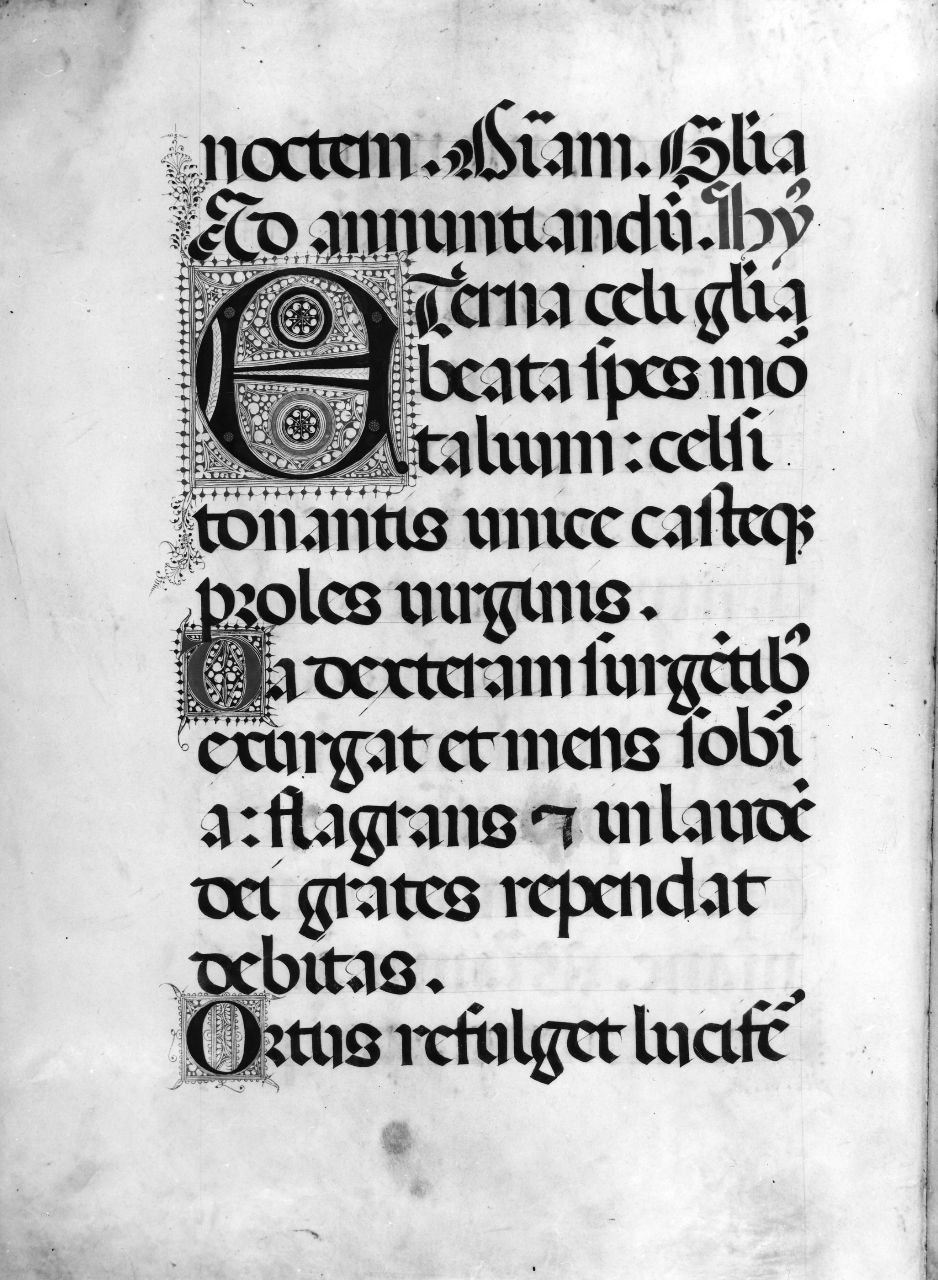 noctem. Nām. Gl̄ia
Ad annuntiandū. Ihy᷒
ETerna celi gl̄ia
beata ſpes mõ
talium : celſi
tonantis unice caſteqꝫ
proles uirginis.
Da dexteram ſurgētib᷒
exurgat et mens ſobr̄i
a : flagrans ⁊ in laudē
dei grates rependat
debitas.
Ortus refulget lucifē